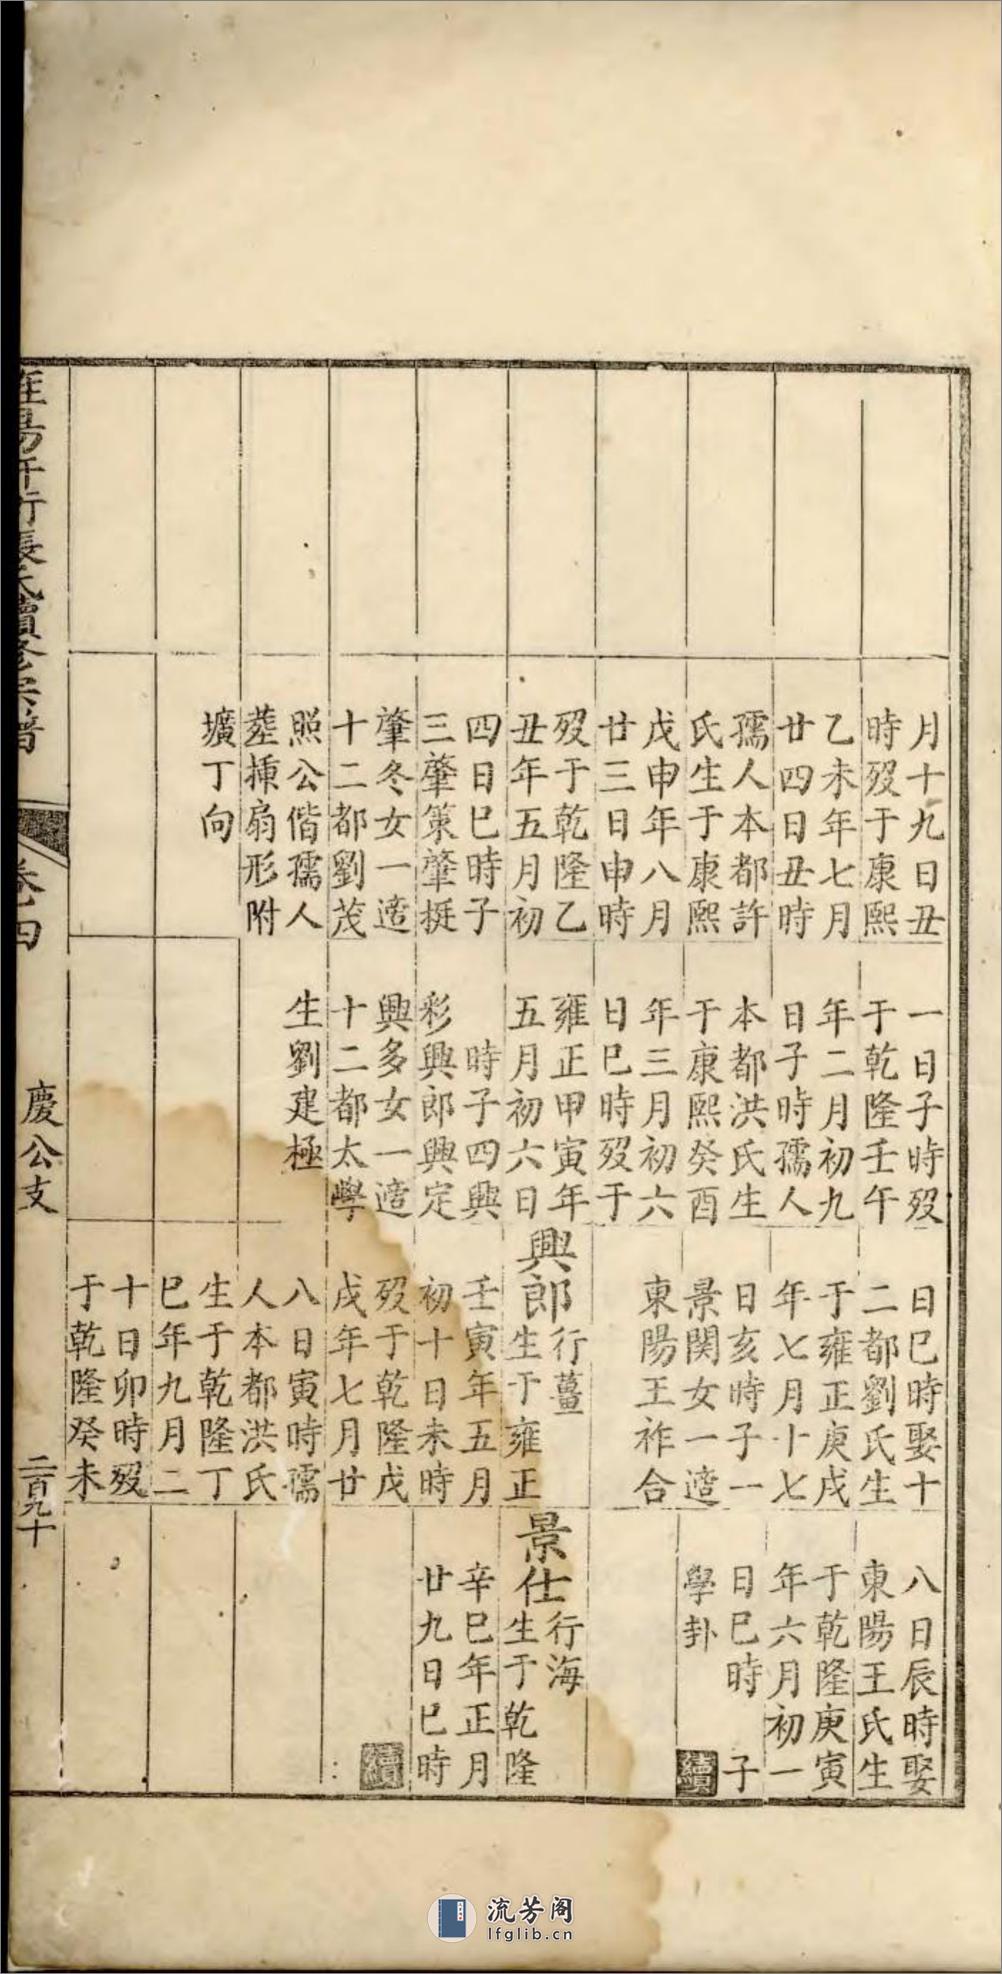 月十九日丑
時歿于康熙
乙未年七月
廿四日丑時
孺人本都許
氏生于康熙
戊申年八月
廿三日申時
歿于乾隆乙
丑年五月初
四日巳時子
三肇策肇挺
肇冬女一適
十二都劉茂
照公偕孺人
塟揷扇形附
壙丁向
一日子時歿
于乾隆壬午
年二月初九
日子時孺人
本都洪氏生
于康熙癸酉
年三月初六
日巳時歿于
雍正甲寅年
五月初六日
時子四興
彩興郎興定
興多女一適
十二都太學
生劉建極
日巳時娶十
二都劉氏生
于雍正庚戌
年七月十七
日亥時子一
景関女一適
東陽王祚合
興郎
行薑
生于雍正
壬寅年五月
初十日未時
歿于乾隆戊
戌年七月廿
八日寅時孺
人本都洪氏
生于乾隆丁
巳年九月二
十日卯時歿
于乾隆癸未
八日辰時娶
東陽王氏生
于乾隆庚寅
年六月初一
日巳時 子
學卦
續
景仕
行海
生于乾隆
辛巳年正月
廿九日巳時
續
張氏續修宗譜
卷四
慶公支
二百九十
流芳阁
lfglib.cn